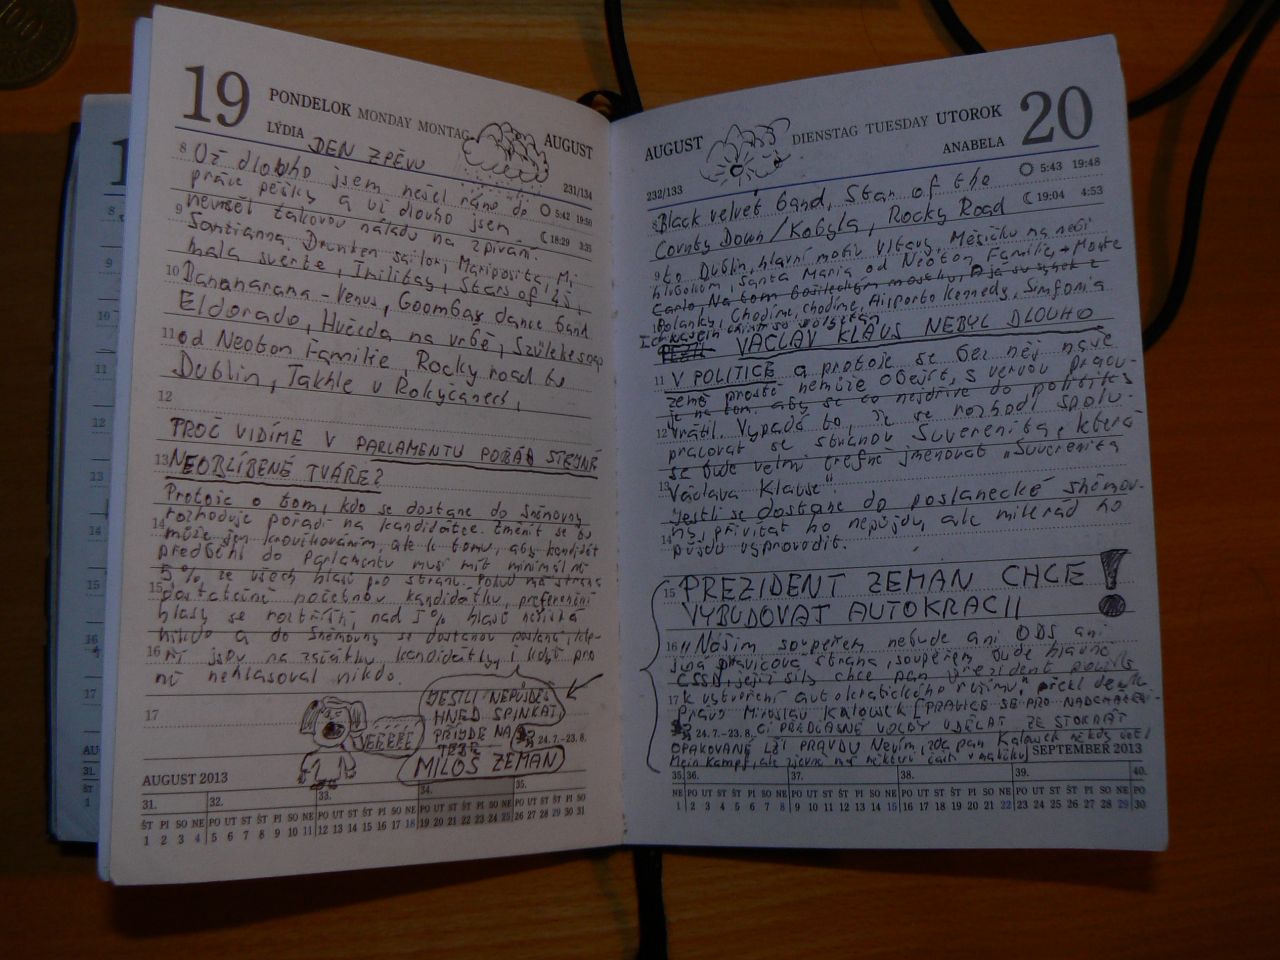 19
PONDELOK MONDAY MONTAG
AUGUST
LÝDIA
DEN ZPĚVU
231/134
8 Už dlouho jsem nešel ráno do
práce pěšky a už dlouho jsem
5:42 19:50
neměl takovou náladu na zpívání.
18:29
9 Santianna, Drunken sailor, Mariposita, Mi
mala suerte, Trilitas, Stars of 45,
10 Bananarama - Venus, Goombay dance band
Eldorado, Hvězda na vrbě, Szülekesnap
11 od Neoton Familie, Rocky road to
Dublin, Takhle v Rokycanech,
12
PROČ VIDÍME V PARLAMENTU POŘÁD STEJNÉ
13 NEOBLÍBENÉ TVÁŘE?
Protože o tom, kdo se dostane do Sněmovny
14 rozhoduje pořadí na kandidátce. Změnit se to
může jen kroužkováním, ale k tomu, aby kandidát
předběhl do Parlamentu musí mít minimálně
15 5% ze všech hlasů pro stranu. Pokud má strana
dostatečně početnou kandidátku, preferenční
hlasy se roztříští, nad 5% hlasů nezíská
16 nikdo a do Sněmovny se dostanou poslanci, kte-
ří jsou na začátku kandidátky, i když pro
ně nehlasoval nikdo.
17
JESTLI NEPŮJDEŠ
HNED SPINKAT,
PŘIJDE NA
TEBE
MILOŠ ZEMAN
24. 7.–23. 8.
AUGUST 2013
31. 32. 33. 34. 35.
ŠT PI SO NE PO UT ST ŠT PI SO NE PO UT ST ŠT PI SO NE PO UT ST ŠT PI SO NE PO UT ST ŠT PI SO
1 2 3 4 5 6 7 8 9 10 11 12 13 14 15 16 17 18 19 20 21 22 23 24 25 26 27 28 29 30 31
AUGUST
DIENSTAG TUESDAY UTOROK
20
ANABELA
232/133
5:43 19:48
19:04 4:53
8 Black velvet band, Star of the
County Down/Kobyla, Rocky Road
9 to Dublin, hlavní motiv Vltavy, Měsíčku na nebi
hlubokém, Santa Maria od Neoton Familie, Monte
Carlo
Polanky, Chodíme, chodíme, Airporto Kennedy, Simfonia
VÁCLAV KLAUS NEBYL DLOUHO
11 V POLITICE a protože se bez něj naše
země prostě nemůže obejít, s vervou pracu-
je na tom, aby se co nejdříve do politiky
12 vrátil. Vypadá to, že se rozhodl spolu-
pracovat se stranou Suverenita, která
se bude velmi trefně jmenovat „Suverenita
13 Václava Klause".
Jestli se dostane do poslanecké sněmov-
ny, přivítat ho nepůjdu, ale milerád ho
14 půjdu vyprovodit.
15 PREZIDENT ZEMAN CHCE !
VYBUDOVAT AUTOKRACII
16 „Naším soupeřem nebude ani ODS ani
jiná pravicová strana, soupeřem bude hlavně
ČSSD, její síly chce pan prezident použít
17 k vytvoření autokratického režimu," řekl
Právu Miroslav Kalousek
24. 7.–23. 8.
OPAKOVANÉ LŽI PRAVDU Nevím, zda pan Kalousek někdy četl
Mein Kampf, ale zjevně má některé části v malíčku
SEPTEMBER 2013
35. 36. 37. 38. 39. 40.
NE PO UT ST ŠT PI SO NE PO UT ST ŠT PI SO NE PO UT ST ŠT PI SO NE PO UT ST ŠT PI SO NE PO
1 2 3 4 5 6 7 8 9 10 11 12 13 14 15 16 17 18 19 20 21 22 23 24 25 26 27 28 29 30